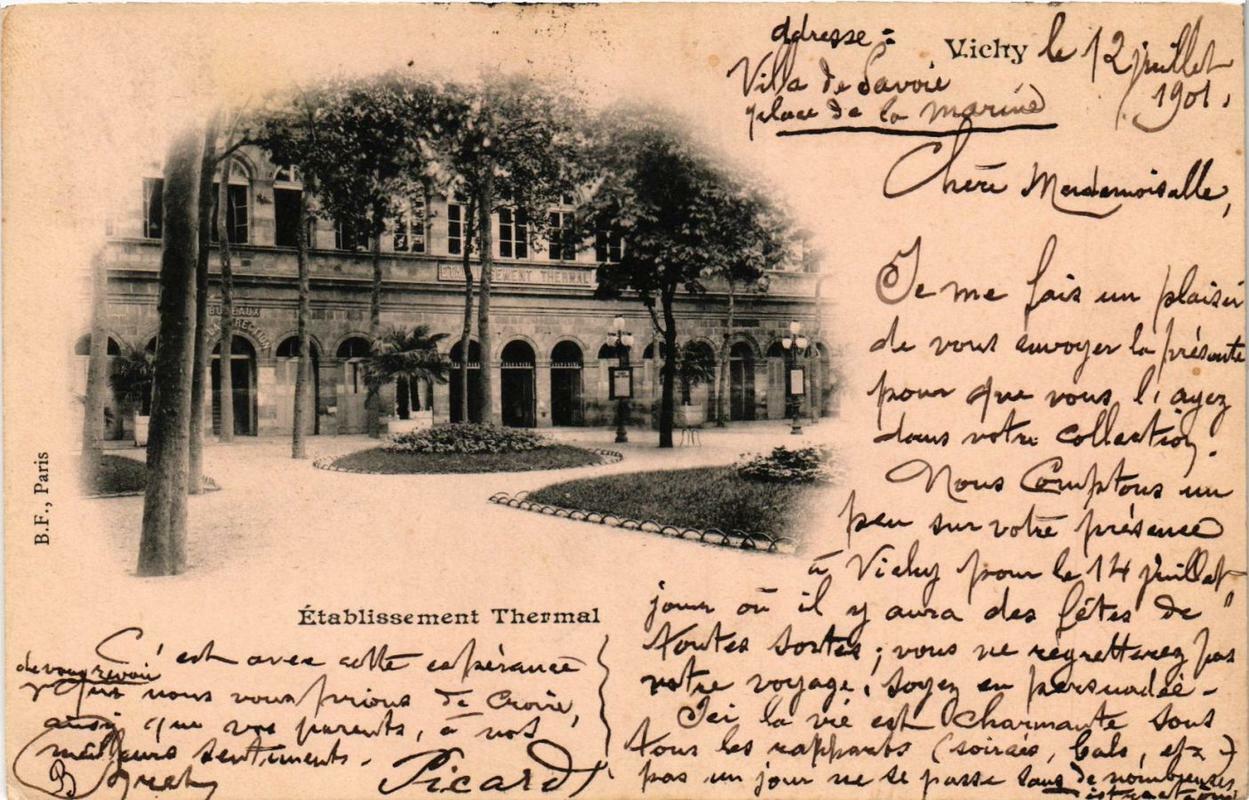 adresse :
Villa de Savoie
place de la marine
Vichy le 12 juillet
1901.
Chère Mademoiselle,
Je me fais un plaisir
de vous envoyer la présente
pour que vous l'ayez
dans votre collection.
Nous Comptons un
peu sur votre présence
à Vichy pour le 14 juillet,
jour où il y aura des fêtes de
toutes sortes ; vous ne regretterez pas
votre voyage, soyez en persuadée -
Ici la vie est charmante sous
tous les rapports (soirées, bals, etc)
pas un jour ne se passe sans de nombreuses
distractions
ETABLISSEMENT THERMAL
BUREAUX
DIRECTION
B.F., Paris
Établissement Thermal
C'est avec cette espérance
de vous revoir
que nous vous prions de croire,
ainsi que vos parents, à nos
meilleurs sentiments.
Picard